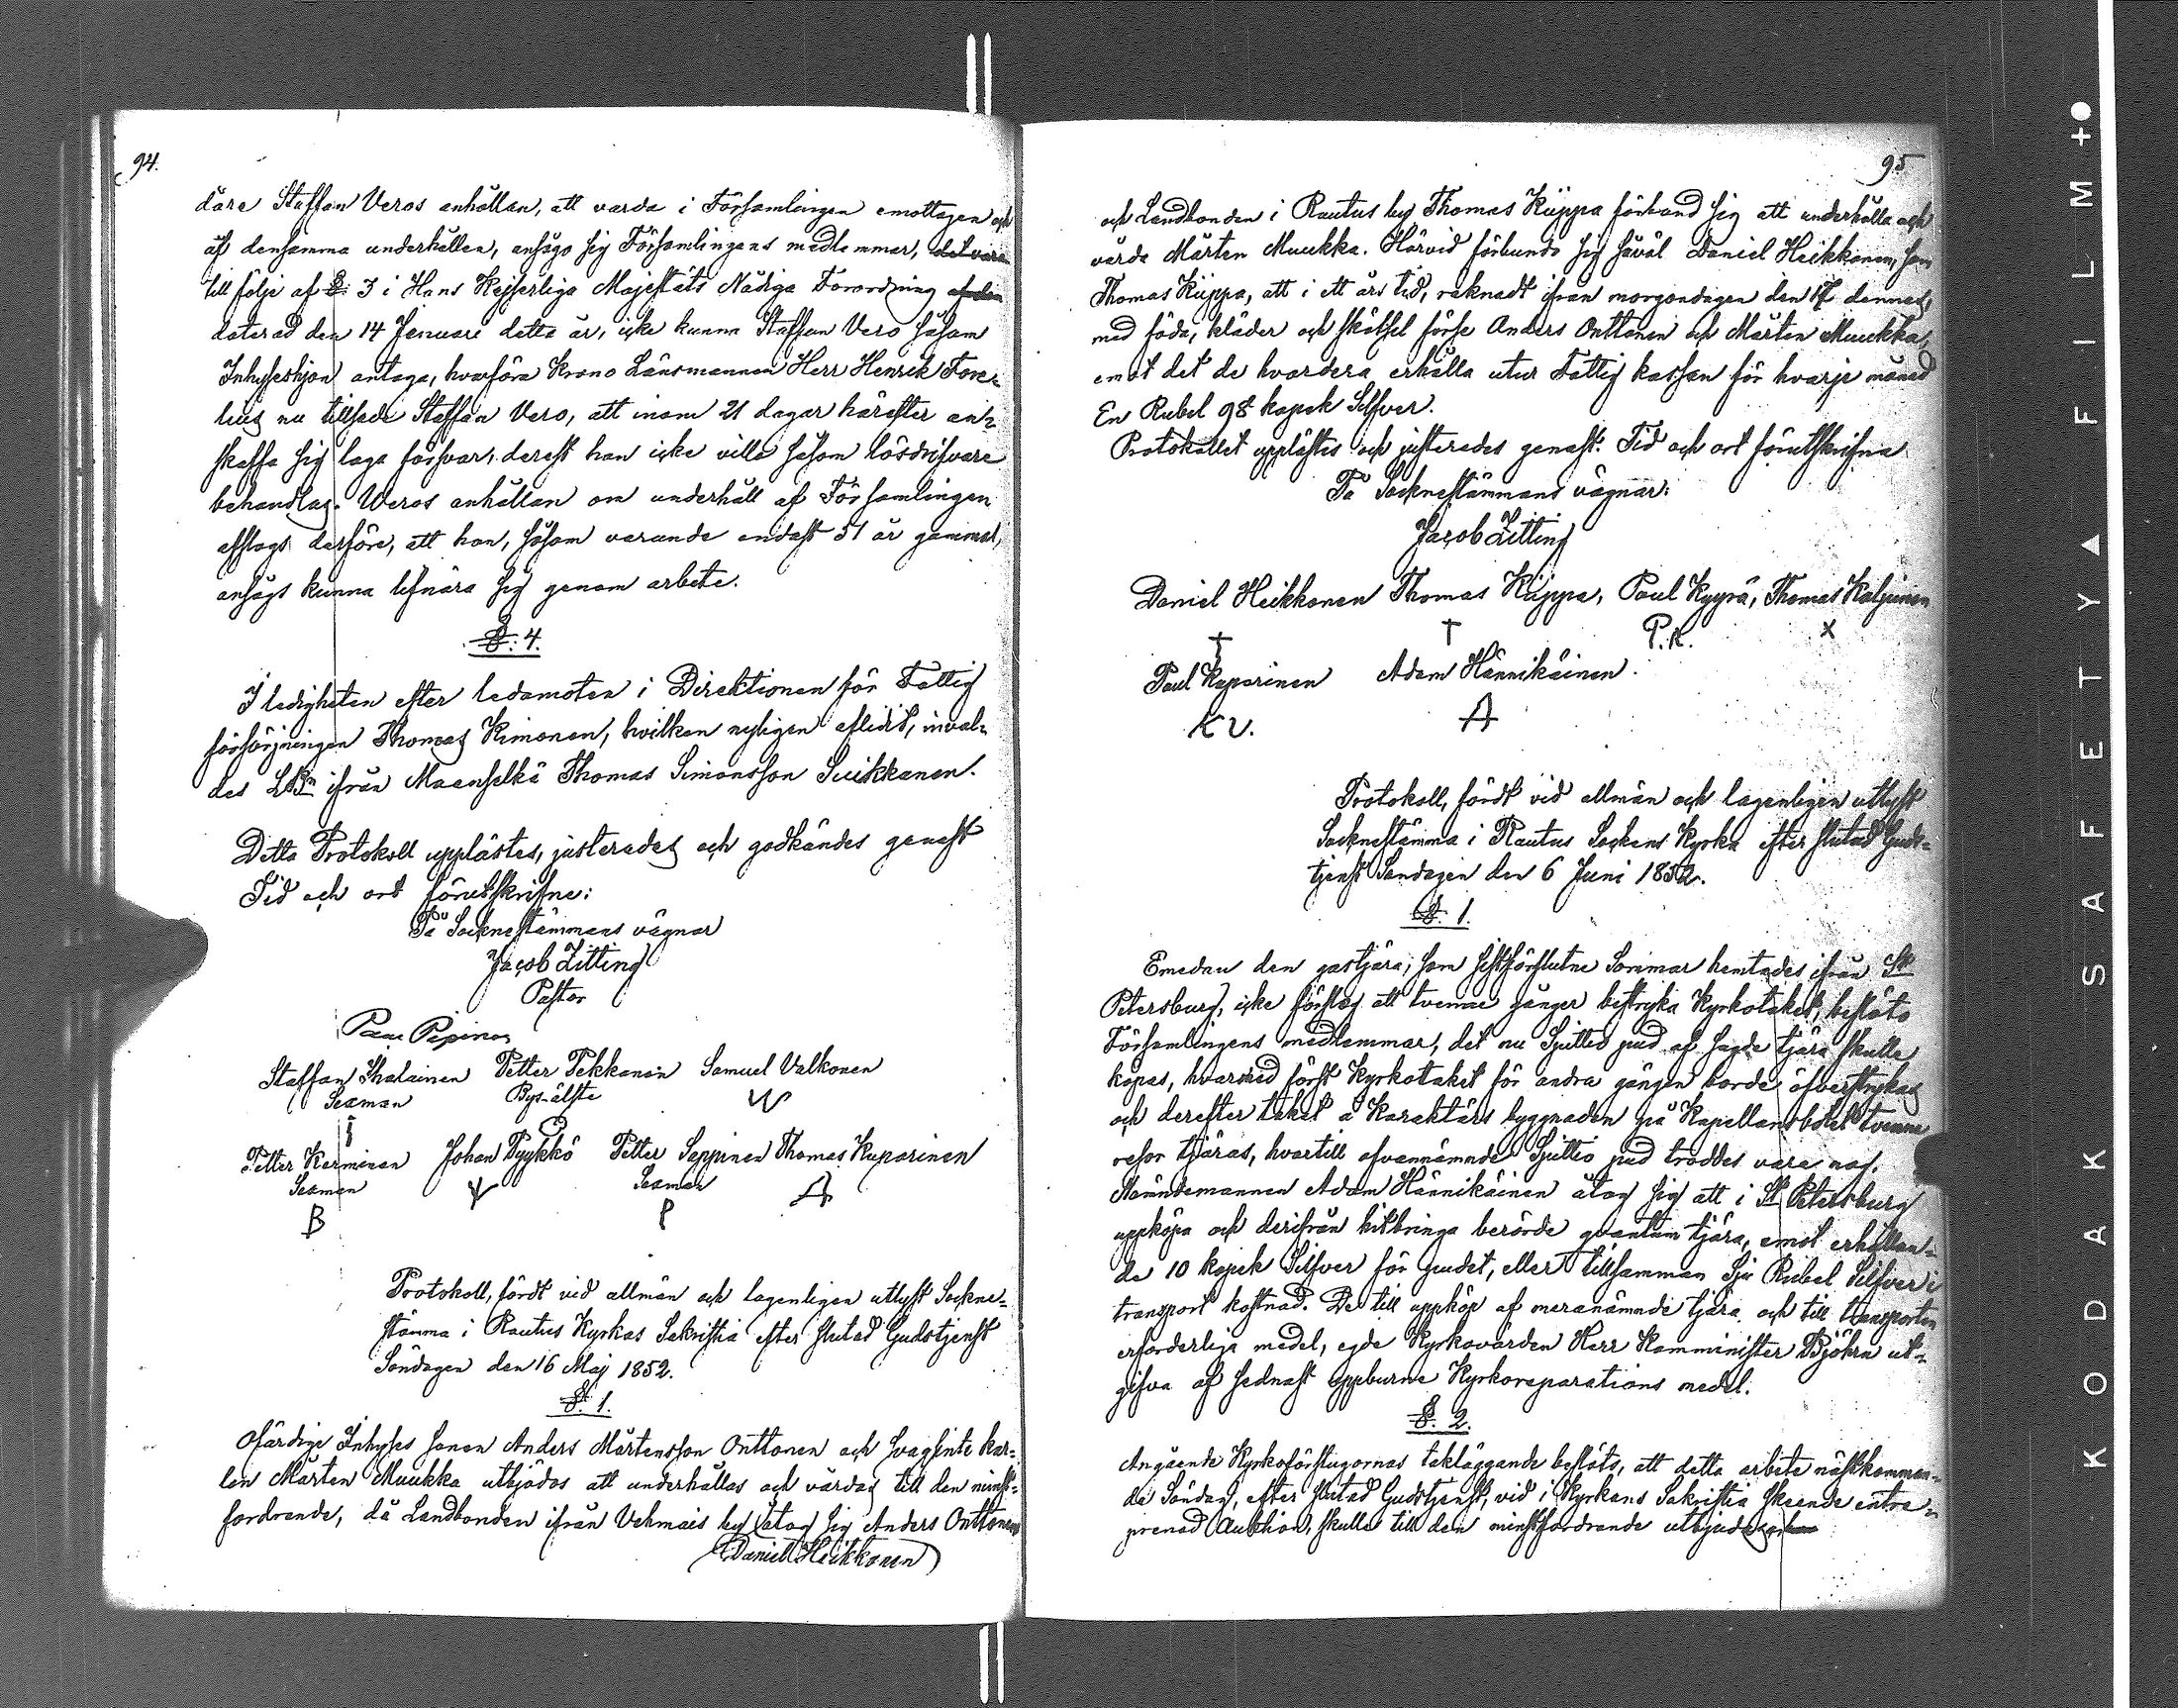 94.
dare Staffan Veros anhållan, att varda i Församlingen emottagen och
af densamma underhållen, ansågo sig Församlingens medlemmar, det vara
till följe af § 3 i Hans Kejserliga Majestäts Nådiga Förordning af den
daterad den 14 Januari detta år, icke kunna Staffan Vero såsom
Inhyseshjon antaga, hvarföre Krono Länsmannen Herr Henrik Fore-
lius nu tillsade Staffan Vero, att inom 21 dagar härefter an-
skaffa sig laga försvar, derest han icke ville såsom lösdrifvare
behandlas. Veros anhållan om underhåll af Församlingen
afslogs derföre, att han, såsom varande endast 51 år gammal,
ansågs kunna lifnära sig genom arbete.
§. 4.
I ledigheten efter ledamoten i Direktionen för Fattig
försörjningen Thomas Kimonen, hvilken nyligen aflidit, inval-
des ifrån Maanselkä Thomas Simonsson Suikkanen.
Detta Protokoll upplästes, justerades och godkändes genast
Tid och ort förutskrifne:
På Socknestämmans vägnar
Jacob Zitting
Pastor
Paar Pipinen
Staffan Ihalainen Petter Pekkanen Samuel Valkonen
Sexman Bys-älste
Petter Karminen Johan Pyykkö Petter Seppinen Thomas Kuparinen
Sexman Sexman
B P A
Protokoll, fördt vid allmän och lagenligen utlyst Sockne-
stämma i Rautus Kyrkas Sakristia efter slutad Gudstjenst
Söndagen den 16 Maj 1852.
§. 1.
Ofärdige Inhyses sonen Anders Mårtensson Onttonen och svagsinte kar-
len Mårten Muukka utbjödos att underhållas och vårdas till den minst-
fordrande, då Landbonden ifrån Vehmais by åtog sig Anders Onttonen
(Daniel Heikkonen)
95
och Landbonden i Rautus by Thomas Kiippa förband sig att underhålla och
vårda Mårten Muukka. Härvid förbundo sig såväl Daniel Heikkonen, som
Thomas Kiippa, att i ett års tid, räknadt ifrån morgondagen den 17 dennes,
med föda, kläder och skötsel förse Anders Onttonen och Mårten Muukka,
emot det de hvardera erhålla utur Fattig kassan för hvarje månad
En Rubel 98 kopek Silfver.
Protokollet upplästes och justerades genast. Tid och ort förutskrifna
På Socknestämmans vägnar:
Jacob Zitting
Daniel Heikkonen Thomas Kiippa, Paul Kyyrä, Thomas Kaljunen
P.K. X
Paul Kaparinen Adam Hännikäinen.
K V. A
Protokoll, fördt vid allmän och lagenligen utlyst
Socknestämma i Rautus Sockens Kyrka efter slutad Guds-
tjenst Söndagen den 6 Juni 1852.
§. 1.
Emedan den gastjära, som sistförflutne Sommar hemtades ifrån St
Petersburg, icke förslog att tvenne gånger bestryka Kyrkotaket, beslöto
Församlingens medlemmar, det nu Sjuttio pud af sagde tjära skulle
köpas, hvarmed först Kyrkotaket för andra gången borde öfverstrykas
och derefter taket å Karaktärs byggnaden på Kapellansbolet tvenne
resor tjäras, hvartill ofvannämnde Sjuttio pud troddes vara nog.
Nämndemannen Adam Hännikäinen åtog sig att i St Petersburg
uppköpa och derifrån hitbringa berörde qvantum tjära, emot erhållan-
de 10 kopek Silfver för pudet, eller tillsamman Sju Rubel Silfver i
transport kostnad. De till uppköp af meranämnde tjära och till transporten
erforderliga medel, egde Kyrkovärden Herr Komminister Björkn ut-
gifva af sednast uppburne Kyrkoreparations medel.
§. 2.
Angående Kyrkoförstugornas takläggande beslöts, att detta arbete nästkomman-
de Söndag, efter slutad Gudstjenst, vid i Kyrkans Sakristia skeende entre-
prenad Auktion, skulle till den minstfordrande utbjudas
KODAK SAFETY ▲ FILM +●